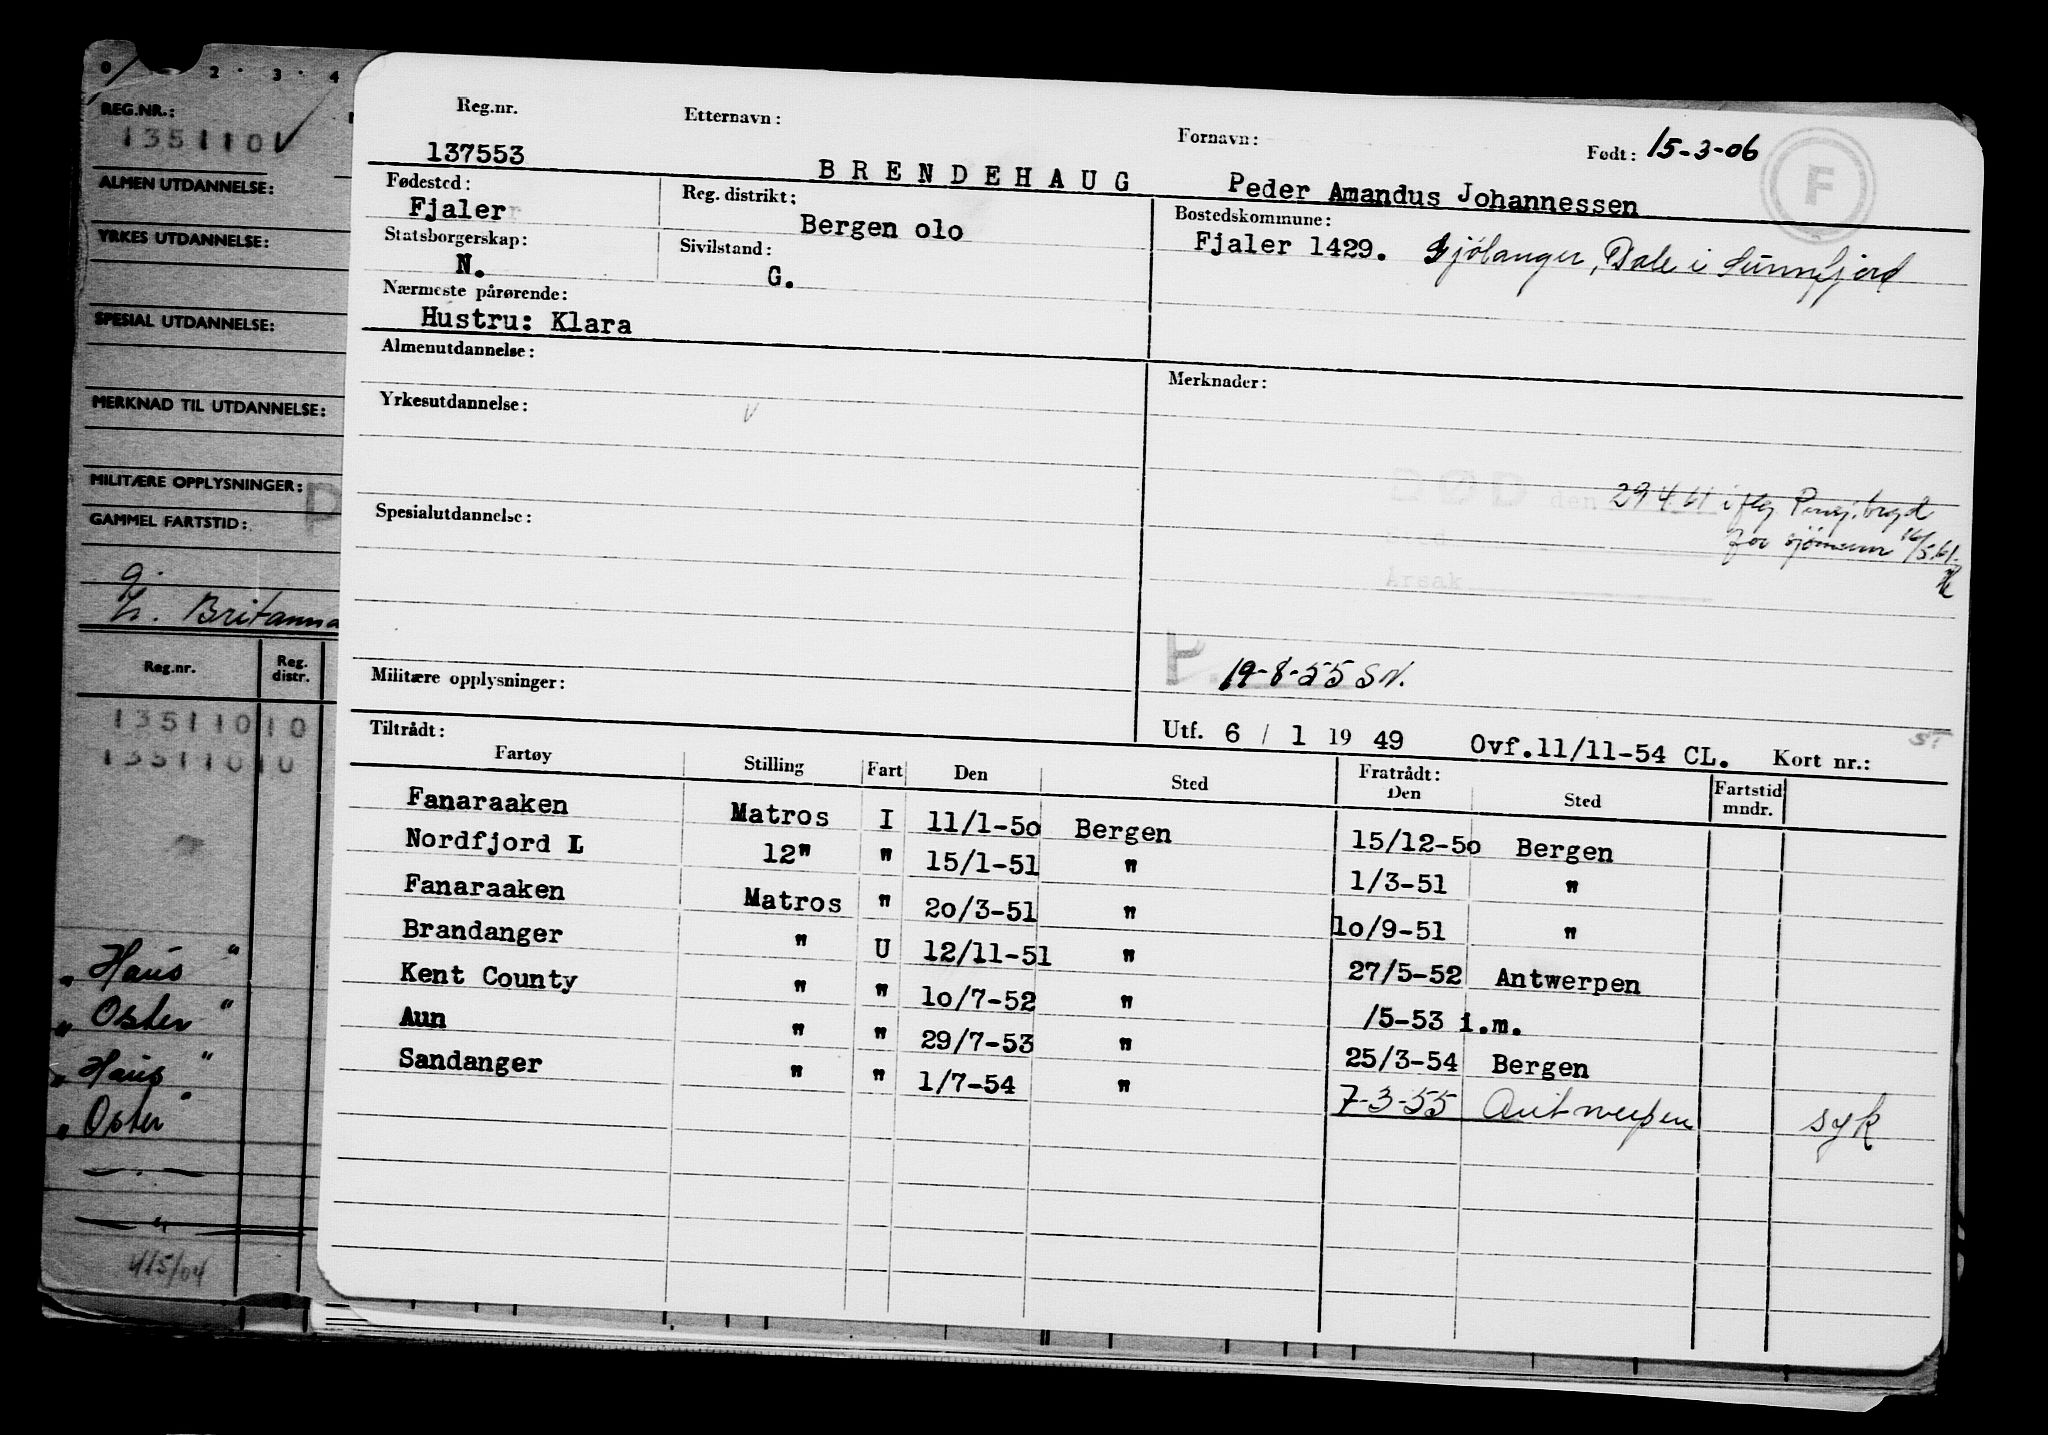 0 2 · 3 · 4
REG.NR.:
1351101
ALMEN UTDANNELSE:
YRKES UTDANNELSE:
SPESIAL UTDANNELSE:
MERKNAD TIL UTDANNELSE:
MILITÆRE OPPLYSNINGER:
P
GAMMEL FARTSTID:
Britannia
Reg.nr. Reg. distr.
1351101 0
1351101 0
„ Haus "
„ Oster "
„ Haus "
„ Oster "
415/04
Reg.nr. Etternavn: Fornavn: Født: 15-3-06
137553 BRENDEHAUG Peder Amandus Johannessen
F
Fødested: Reg. distrikt: Bostedskommune:
Fjaler Bergen olo Fjaler 1429. Gjølanger, Dale i Sunnfjord
Statsborgerskap: Sivilstand:
N. G.
Nærmeste pårørende:
Hustru: Klara
Almenutdannelse: Merknader:
Yrkesutdannelse:
DØD den 29 4 61 iflg Pensj.
Spesialutdannelse: for sjømenn 16/5.61.
Årsak
P. 19-8-55 SN.
Militære opplysninger:
Utf. 6 / 1 19 49 Ovf.11/11-54 CL. Kort nr.:
ST
Tiltrådt: Fratrådt:
Fartøy Stilling Fart Den Sted Den Sted Fartstid mndr.
Fanaraaken Matros I 11/1-5o Bergen 15/12-5o Bergen
Nordfjord L 12" " 15/1-51 " 1/3-51 "
Fanaraaken Matros " 2o/3-51 " 1o/9-51 "
Brandanger " U 12/11-51 " 27/5-52 Antwerpen
Kent County " " 1o/7-52 " /5-53 i.m.
Aun " " 29/7-53 " 25/3-54 Bergen
Sandanger " " 1/7-54 " 7-3-55 Antwerpen syk